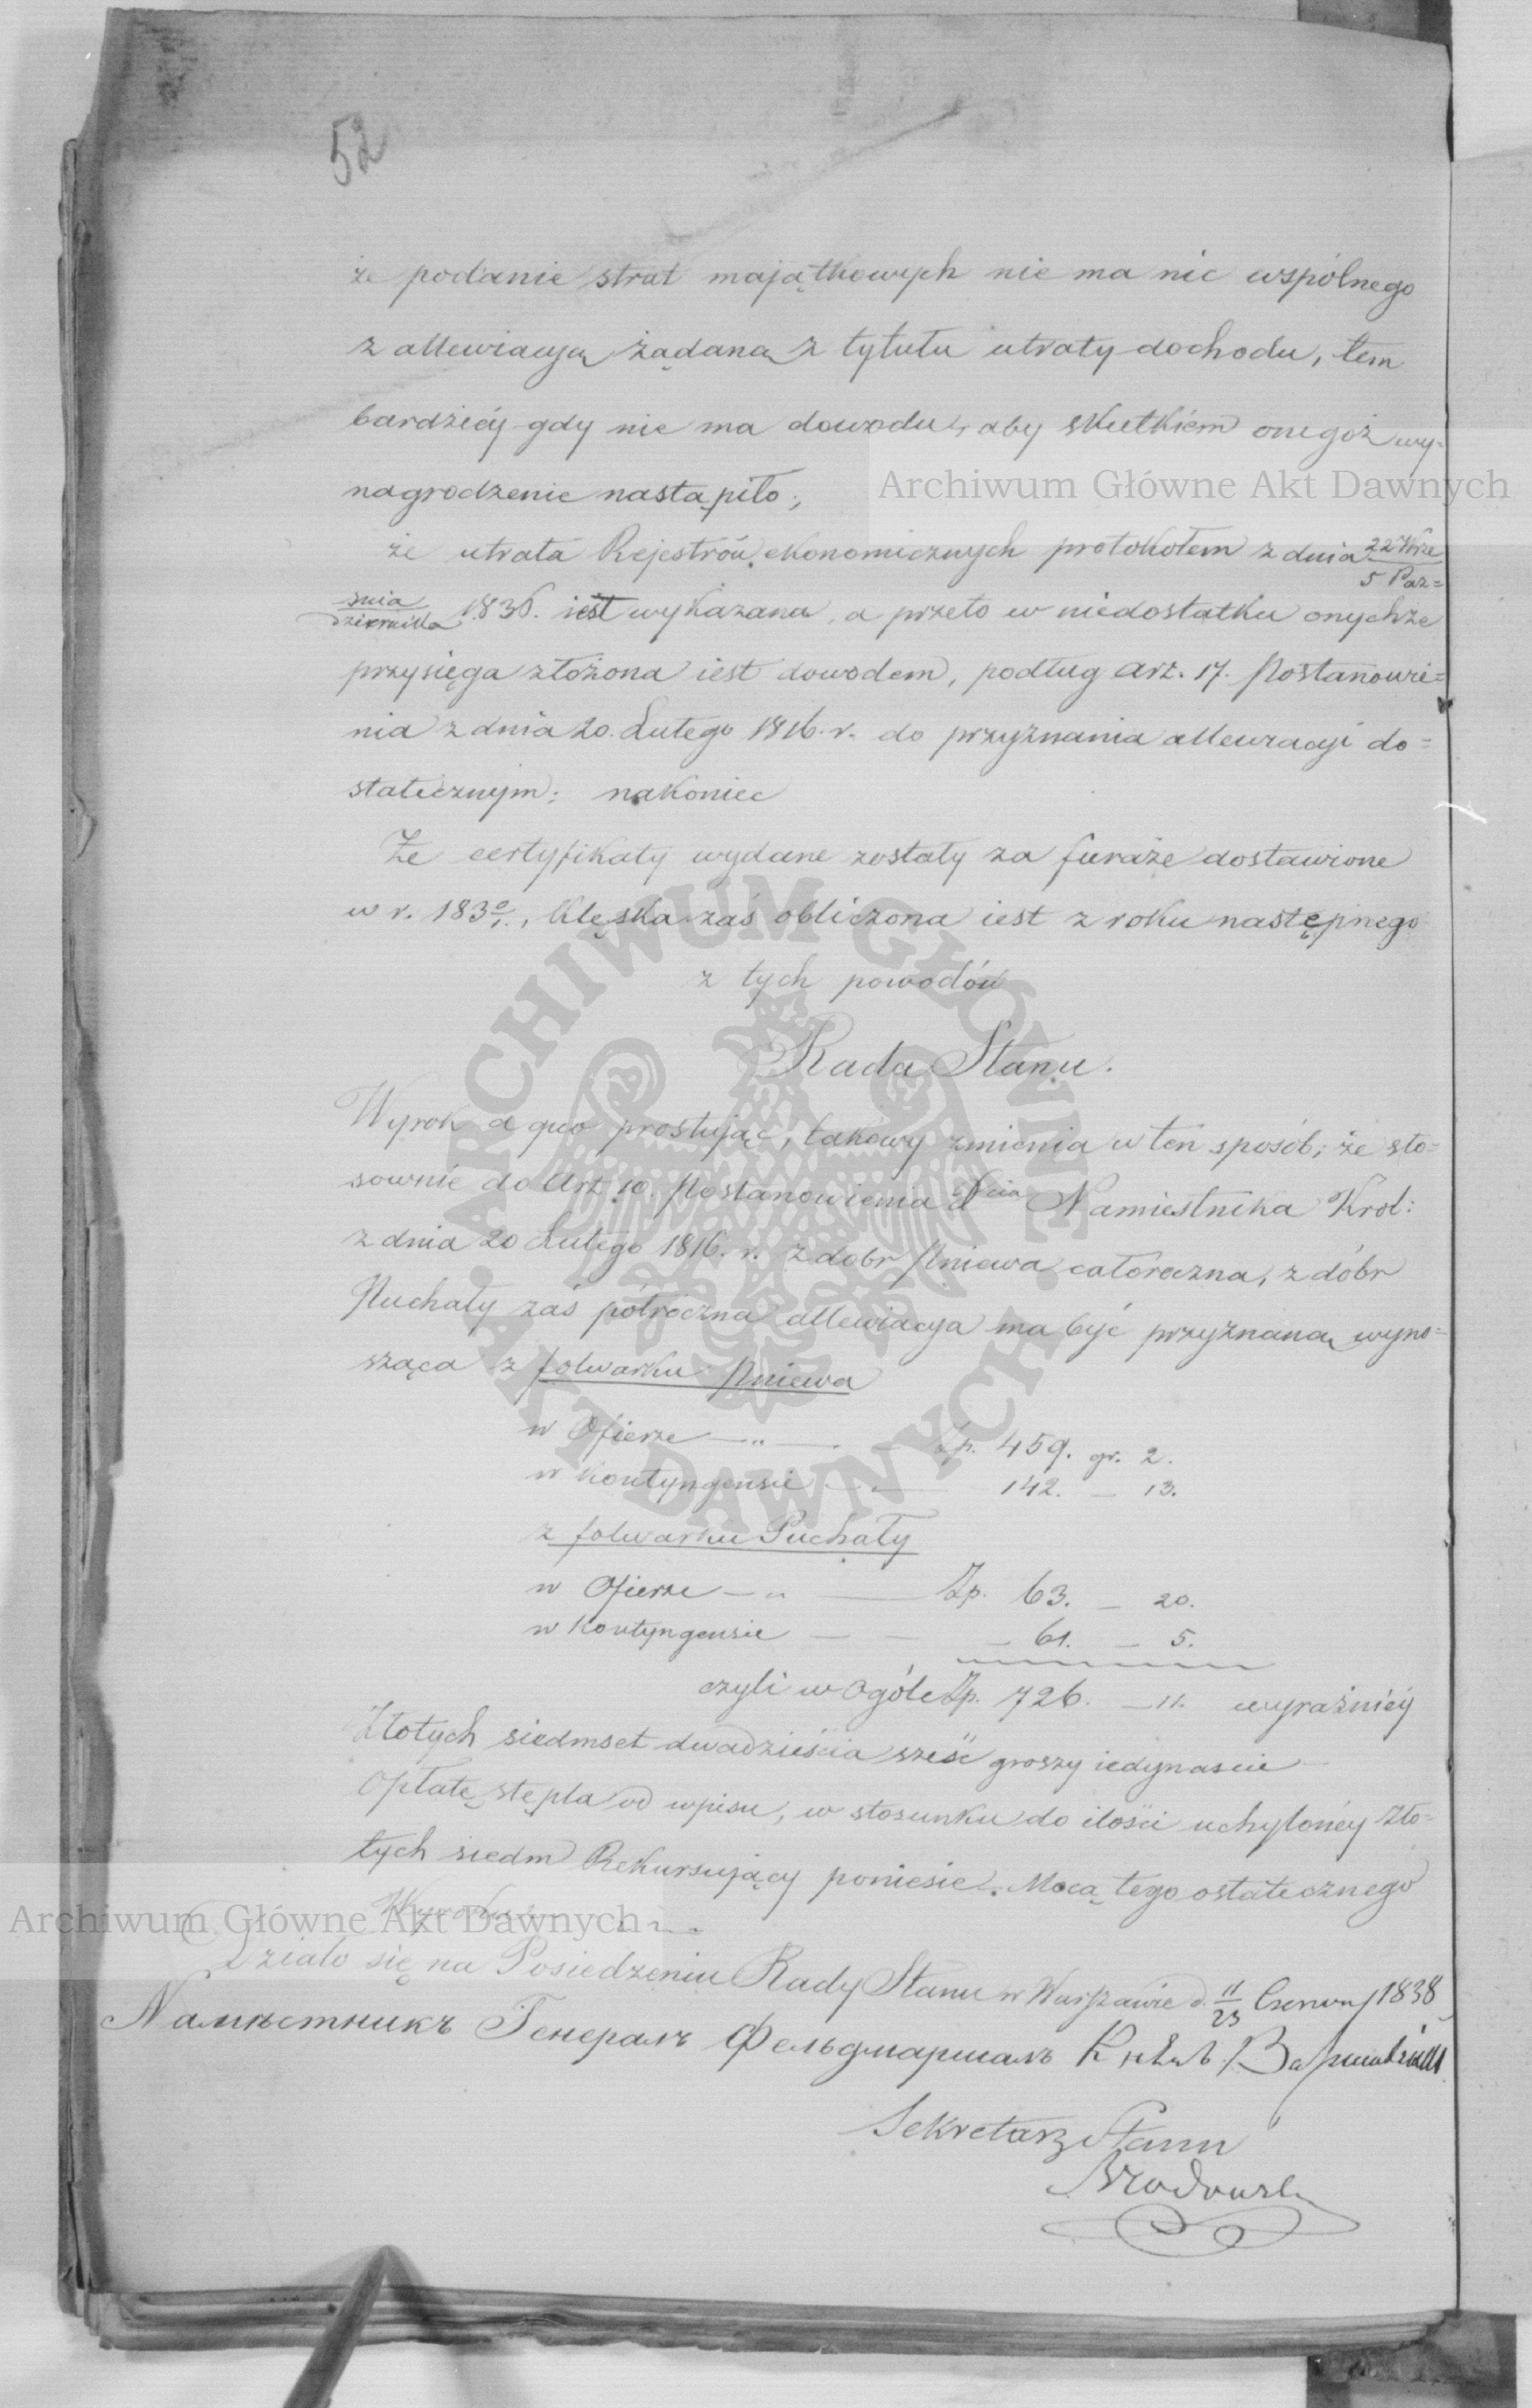 52
że podanie strat majątkowych nie ma nic wspólnego
z allewiacyą żądaną z tytułu utraty dochodu, tem
bardziéy gdy nie ma dowodu, aby skutkiém onegoż wy-
nagrodzenie nastąpiło;
że utrata Rejestrów ekonomicznych protokołem z dnia 22 Wrze
5 Paz=
śnia
dziernika 1836. iest wykazana, a przeto w niedostatku onychże
przysięga złożona iest dowodem, podług art. 17. Postanowie=
nia z dnia 20. Lutego 1816. r. do przyznania allewiacyi do=
statecznym; nakoniec
Że certyfikaty wydane zostały za furaże dostawione
w r. 183 0/1., Klęska zaś obliczona iest z roku następnego
z tych powodów
Rada Stanu.
Wyrok a quo prostując, takowy zmienia w ten sposób; że sto=
sownie do Art. 10. Postanowienia Xcia Namiestnika Krol:
z dnia 20 Lutego 1816. r. z dobr Pniewa całoroczna, z dóbr
Puchały zaś półroczna allewiacya ma być przyznaną wyno=
sząca z folwarku Pniewa
w Ofierze — „ — Zp. 459. gr. 2.
w Kontyngensie — 142. — 13.
z folwarku Puchały
w Ofierze — „ — Zp. 63. — 20.
w Kontyngensie — — — 61. — 5.
czyli w Ogóle Zp. 726. — 11. wyraźniéy
Złotych siedmset dwadzieścia sześć groszy iedynascie —
Opłatę stępla od wpisu, w stosunku do ilości uchylonéy Zło=
tych siedm Rekursujący poniesie. Mocą tego ostatecznego
Wyroku
Działo się na Posiedzeniu Rady Stanu w Warszawie d. 11/23 Czerwca 1838
Намѣстникъ Генералъ Фельдмаршалъ Князь Варшавскій
Sekretarz Stanu
Brodowski
Archiwum Główne Akt Dawnych
ARCHIWUM GŁÓWNE · AKT DAWNYCH ·
Archiwum Główne Akt Dawnych